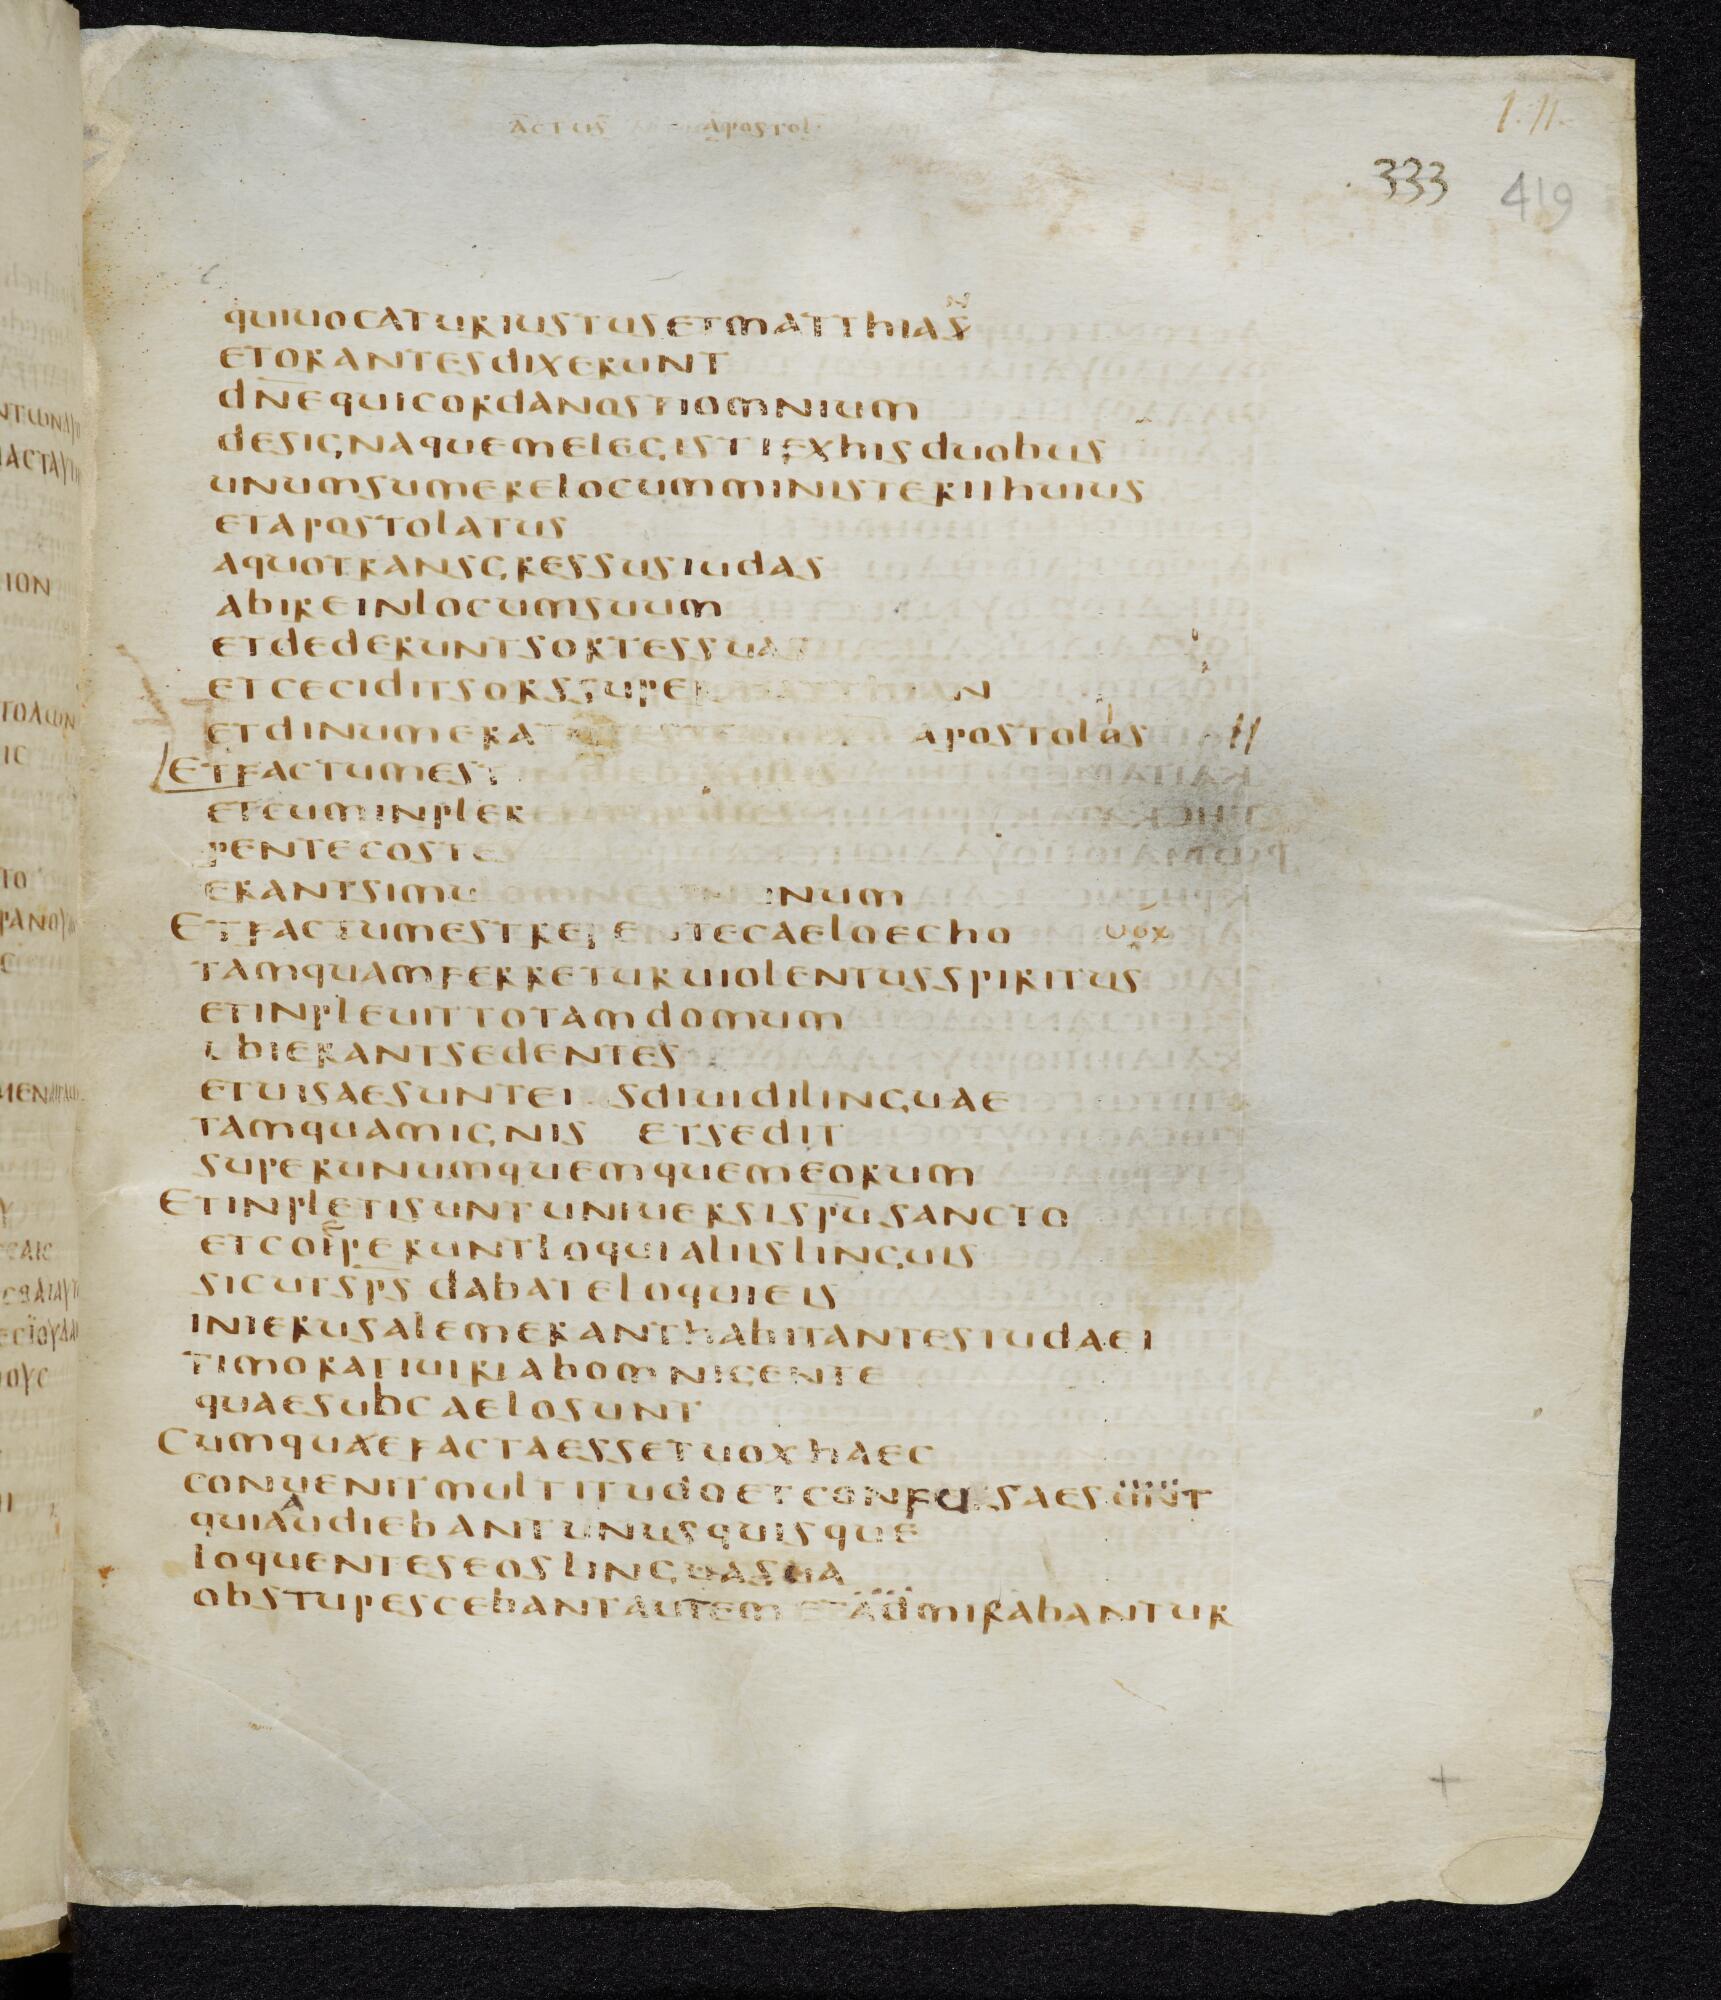 ACTUS APOSTOL
1.11.
333 419
QUIUOCATURIUSTUSETMATTHIAS
ETORANTESDIXERUNT
DNEQUICORDANOSTIOMNIUM
DESIGNAQUEMELEGISTIEXHISDUOBUS
UNUMSUMERELOCUMMINISTERIIHUIUS
ETAPOSTOLATUS
AQUOTRANSGRESSUSIUDAS
ABIREINLOCUMSUUM
ETDEDERUNTSORTESSUAS
ETCECIDITSORSSUPER MATTHIAN
ETDINUMERAT APOSTOLOS
ETFACTUMEST INDIEBUSILLIS
ETCUMINPLER
PENTECOSTES
ERANTSIMUL OMNESIN UNUM
ETFACTUMESTREPENTECAELOECHO UOX
TAMQUAMFERRETURUIOLENTUSSPIRITUS
ETINPLEUITTOTAMDOMUM
UBIERANTSEDENTES
ETUISAESUNTEI SDIUIDILINGUAE
TAMQUAMIGNIS ETSEDIT
SUPERUNUMQUEMQUEMEORUM
ETINPLETISUNTUNIUERSISPUSANCTO
ETCOIPERUNTLOQUIALIISLINGUIS
SICUTSPS DABATELOQUIEIS
INIERUSALEMERANTHABITANTESIUDAEI
TIMORATIUIRIABOMNIGENTE
QUAESUBCAELOSUNT
CUMQUAEFACTAESSETUOXHAEC
CONUENITMULTITUDOETCONFUSAESUNT
QUIAUDIEBANTUNUSQUISQUE
LOQUENTESEOSLINGUASUA
OBSTUPESCEBANTAUTEMETADMIRABANTUR